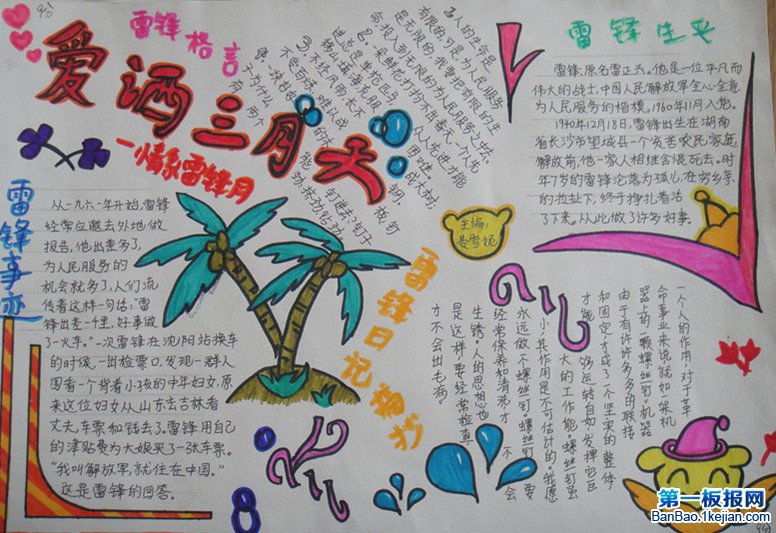 9分
雷锋格言
爱洒三月天
一情系雷锋月
雷锋事迹
从一九六一年开始,雷锋
经常应邀去外地做
报告,他出差多了,
为人民服务的
机会就多了,人们流
传着这样一句话:"雷
锋出差一千里,好事做
了一火车。"一次雷锋在沈阳站换车
的时候,一出检票口,发现一群人
围着一个背着小孩的中年妇女,原
来这位妇女从山东去吉林看
丈夫,车票和钱丢了。雷锋用自己
的津贴费为大娘买了一张车票。
"我叫解放军,就住在中国。"
这是雷锋的回答。
1、人的生命是
有限的,可是,为人民服务
是无限的,我要把有限的生
命,投入到无限的为人民服务之中去。
主编:
雷锋生平
雷锋,原名雷正兴。他是一位平凡而
伟大的战士,中国人民解放军全心全意
为人民服务的楷模,1960年11月入党。
1940年12月18日,雷锋出生在湖南
省长沙市望城县一个贫苦农民家庭,
解放前,他一家人相继含恨死去。时
年7岁的雷锋沦落为孤儿,在穷乡亲
的拉扯下,终于挣扎着活
了下来。从此做了许多好事。
雷锋日记摘抄
一个人的作用,对于革
命事业来说,就如一架机
器上的一颗螺丝钉。机器
由于有许许多多的联接
和固定,才成了一个坚实的整体,
才能够运转自如,发挥它巨
大的工作能。螺丝钉虽
小,其作用是不可估计的。我愿
永远做一个螺丝钉。螺丝钉要
经常保养和清洗,才不会
生锈。人的思想也
是这样,要经常检查,
才不会出毛病。
第一板报网
BanBao.1kejian.com